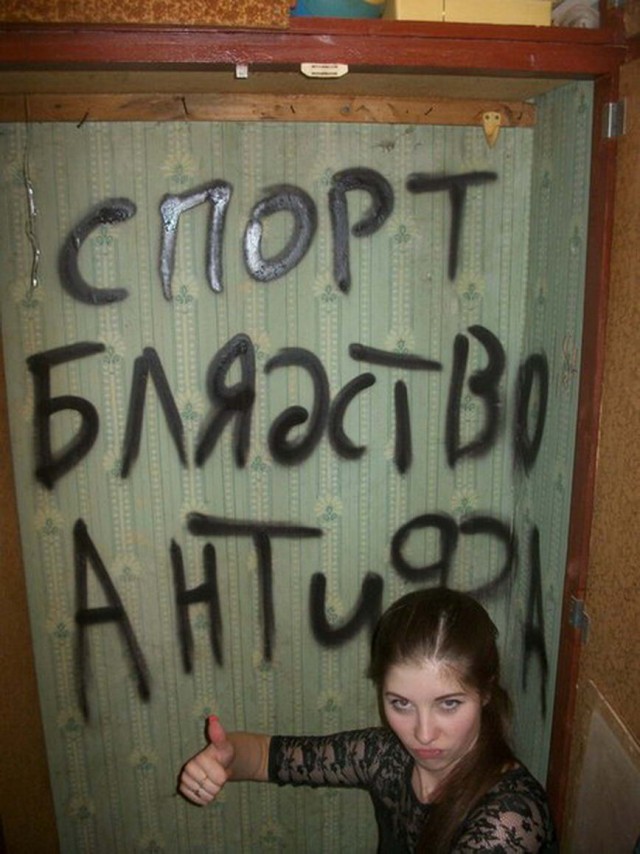 СПОРТ
БЛЯДСТВО
АНТИФА